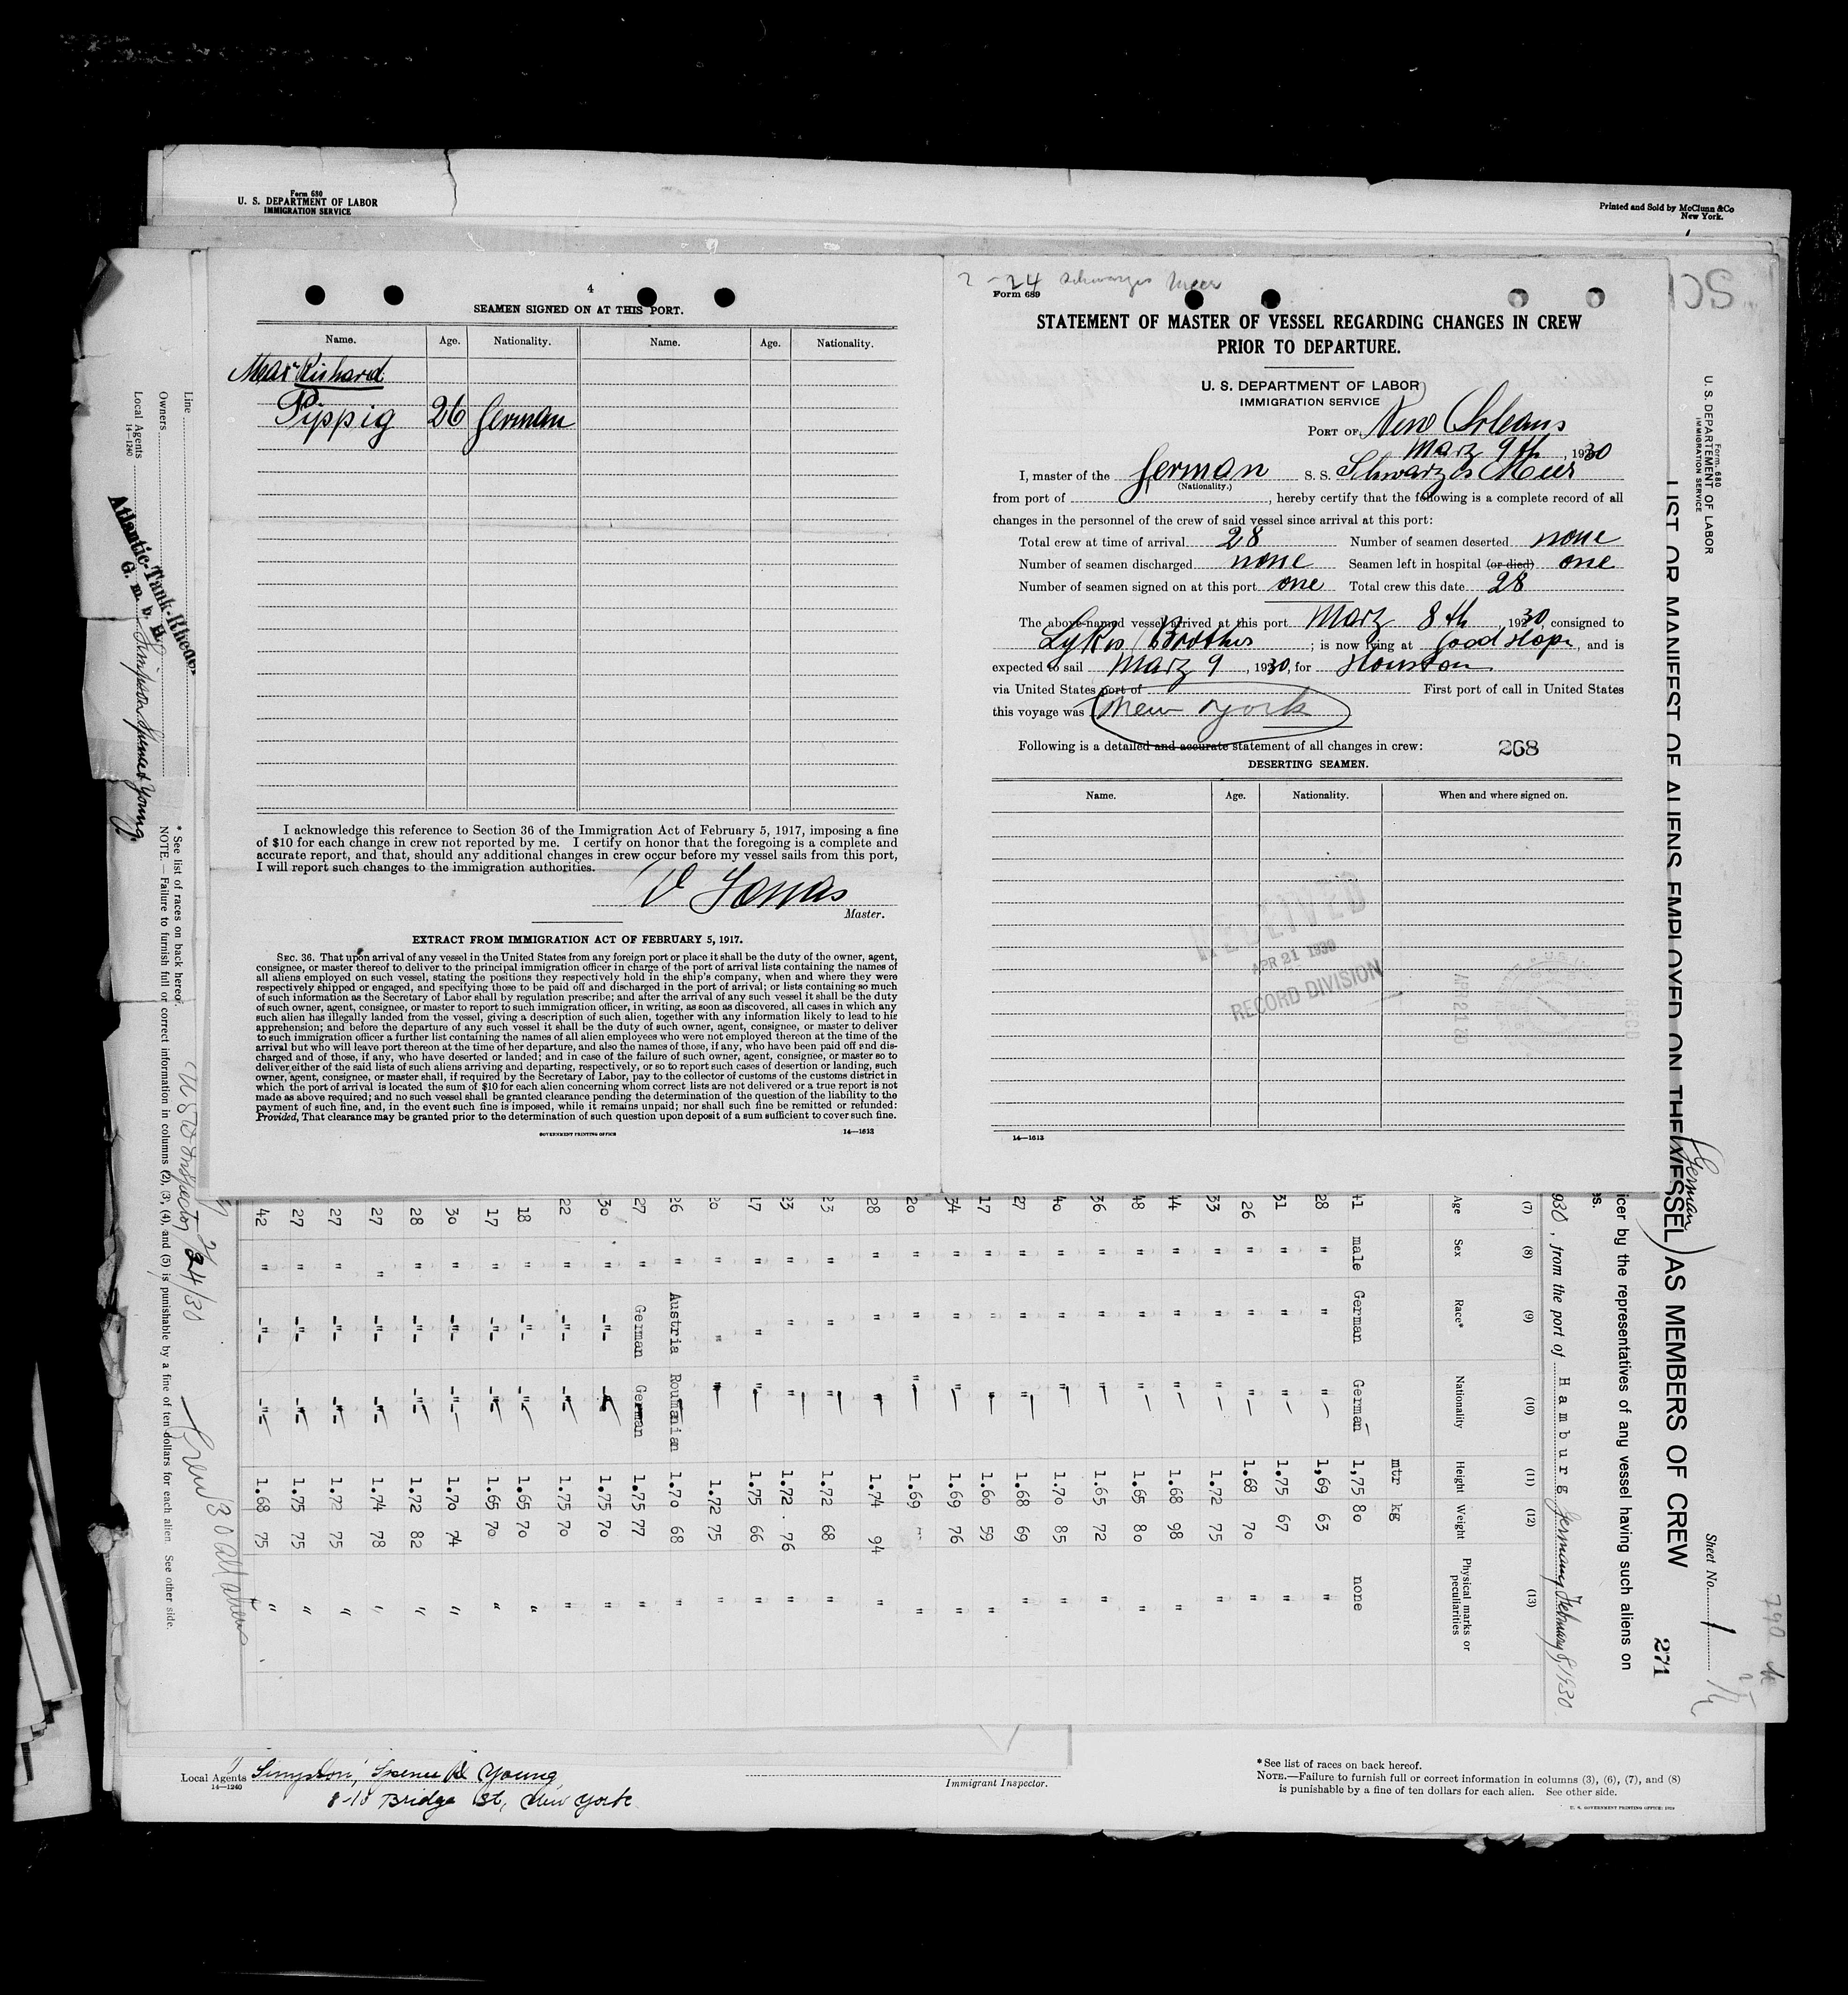 Form 680
U. S. DEPARTMENT OF LABOR
IMMIGRATION SERVICE
Printed and Sold by McClunn & Co
New York.
4
SEAMEN SIGNED ON AT THIS PORT.
Name. Age. Nationality. Name. Age. Nationality.
Max Richard
Pippig 26 German
I acknowledge this reference to Section 36 of the Immigration Act of February 5, 1917, imposing a fine
of $10 for each change in crew not reported by me. I certify on honor that the foregoing is a complete and
accurate report, and that, should any additional changes in crew occur before my vessel sails from this port,
I will report such changes to the immigration authorities.
Master.
EXTRACT FROM IMMIGRATION ACT OF FEBRUARY 5, 1917.
SEC. 36. That upon arrival of any vessel in the United States from any foreign port or place it shall be the duty of the owner, agent,
consignee, or master thereof to deliver to the principal immigration officer in charge of the port of arrival lists containing the names of
all aliens employed on such vessel, stating the positions they respectively hold in the ship's company, when and where they were
respectively shipped or engaged, and specifying those to be paid off and discharged in the port of arrival; or lists containing so much
of such information as the Secretary of Labor shall by regulation prescribe; and after the arrival of any such vessel it shall be the duty
of such owner, agent, consignee, or master to report to such immigration officer, in writing, as soon as discovered, all cases in which any
such alien has illegally landed from the vessel, giving a description of such alien, together with any information likely to lead to his
apprehension; and before the departure of any such vessel it shall be the duty of such owner, agent, consignee, or master to deliver
to such immigration officer a further list containing the names of all alien employees who were not employed thereon at the time of the
arrival but who will leave port thereon at the time of her departure, and also the names of those, if any, who have been paid off and dis-
charged and of those, if any, who have deserted or landed; and in case of the failure of such owner, agent, consignee, or master so to
deliver either of the said lists of such aliens arriving and departing, respectively, or so to report such cases of desertion or landing, such
owner, agent, consignee, or master shall, if required by the Secretary of Labor, pay to the collector of customs of the customs district in
which the port of arrival is located the sum of $10 for each alien concerning whom correct lists are not delivered or a true report is not
made as above required; and no such vessel shall be granted clearance pending the determination of the question of the liability to the
payment of such fine, and, in the event such fine is imposed, while it remains unpaid; nor shall such fine be remitted or refunded:
Provided, That clearance may be granted prior to the determination of such question upon deposit of a sum sufficient to cover such fine.
GOVERNMENT PRINTING OFFICE 14—1613
2-24 Schwarzes Meer
Form 689
STATEMENT OF MASTER OF VESSEL REGARDING CHANGES IN CREW
PRIOR TO DEPARTURE.
U. S. DEPARTMENT OF LABOR
IMMIGRATION SERVICE
PORT OF New Orleans
Marz 9th, 1930
I, master of the German S. S. Schwarzes Meer
(Nationality.)
from port of , hereby certify that the following is a complete record of all
changes in the personnel of the crew of said vessel since arrival at this port:
Total crew at time of arrival 28 Number of seamen deserted none
Number of seamen discharged none Seamen left in hospital (or died) one
Number of seamen signed on at this port one Total crew this date 28
The above-named vessel arrived at this port Marz 8th, 1930, consigned to
Lykes Brothers ; is now lying at Good Hope, and is
expected to sail Marz 9, 1930, for Houston
via United States port of First port of call in United States
this voyage was New York
Following is a detailed and accurate statement of all changes in crew: 268
DESERTING SEAMEN.
Name. Age. Nationality. When and where signed on.
RECEIVED
APR 21 1930
RECORD DIVISION
14—1613
Form 680
U. S. DEPARTMENT OF LABOR
IMMIGRATION SERVICE
Sheet No. 1
LIST OR MANIFEST OF ALIENS EMPLOYED ON THE VESSEL AS MEMBERS OF CREW
(German)
271
icer by the representatives of any vessel having such aliens on
930, from the port of Hamburg Germany February 8, 1930.
(7) (8) (9) (10) (11) (12) (13)
Age Sex Race* Nationality Height Weight Physical marks or peculiarities
mtr kg
41 male German German 1,75 80 none
28 " " " 1,69 63 "
31 " " " 1.75 67 "
26 " " " 1.68 70
33 " " " 1.72 75 "
44 " " " 1.68 98 "
48 " " " 1.65 80 "
36 " " " 1.65 72 "
40 " " " 1.70 85 "
27 " " " 1.68 69 "
17 " " " 1.60 59 "
34 " " " 1.69 76 "
20 " " " 1.69 "
28 " " " 1.74 94 "
" " " 1.72 68 "
" " " 1.72 76 "
17 " " " 1.75 66 "
" " " 1.72 75 "
26 " Austria Roumanian 1.70 68 "
27 " German German 1.75 77 "
30 " -"- -"- 1.75 70 "
22 " -"- -"- 1.75 70 "
18 " -"- -"- 1.65 70 "
17 " -"- -"- 1.65 70 "
30 " -"- -"- 1.70 74 "
28 " -"- -"- 1.72 82 "
27 " -"- -"- 1.74 78 "
27 " -"- -"- 1.72 75 "
27 " -"- -"- 1.75 75 "
42 " -"- -"- 1.68 75 "
Line
Owners
Local Agents Simpson Spence & Young
14—1240
Atlantic-Tank-Rhederei
G. m. b. H.
* See list of races on back hereof.
NOTE.—Failure to furnish full or correct information in columns (2), (3), (4), and (5) is punishable by a fine of ten dollars for each alien. See other side.
Crew 30 all aliens
Local Agents Simpson, Spence & Young
14—1240
8-10 Bridge St, New York
Immigrant Inspector.
* See list of races on back hereof.
NOTE.—Failure to furnish full or correct information in columns (3), (6), (7), and (8)
is punishable by a fine of ten dollars for each alien. See other side.
U. S. GOVERNMENT PRINTING OFFICE: 1929